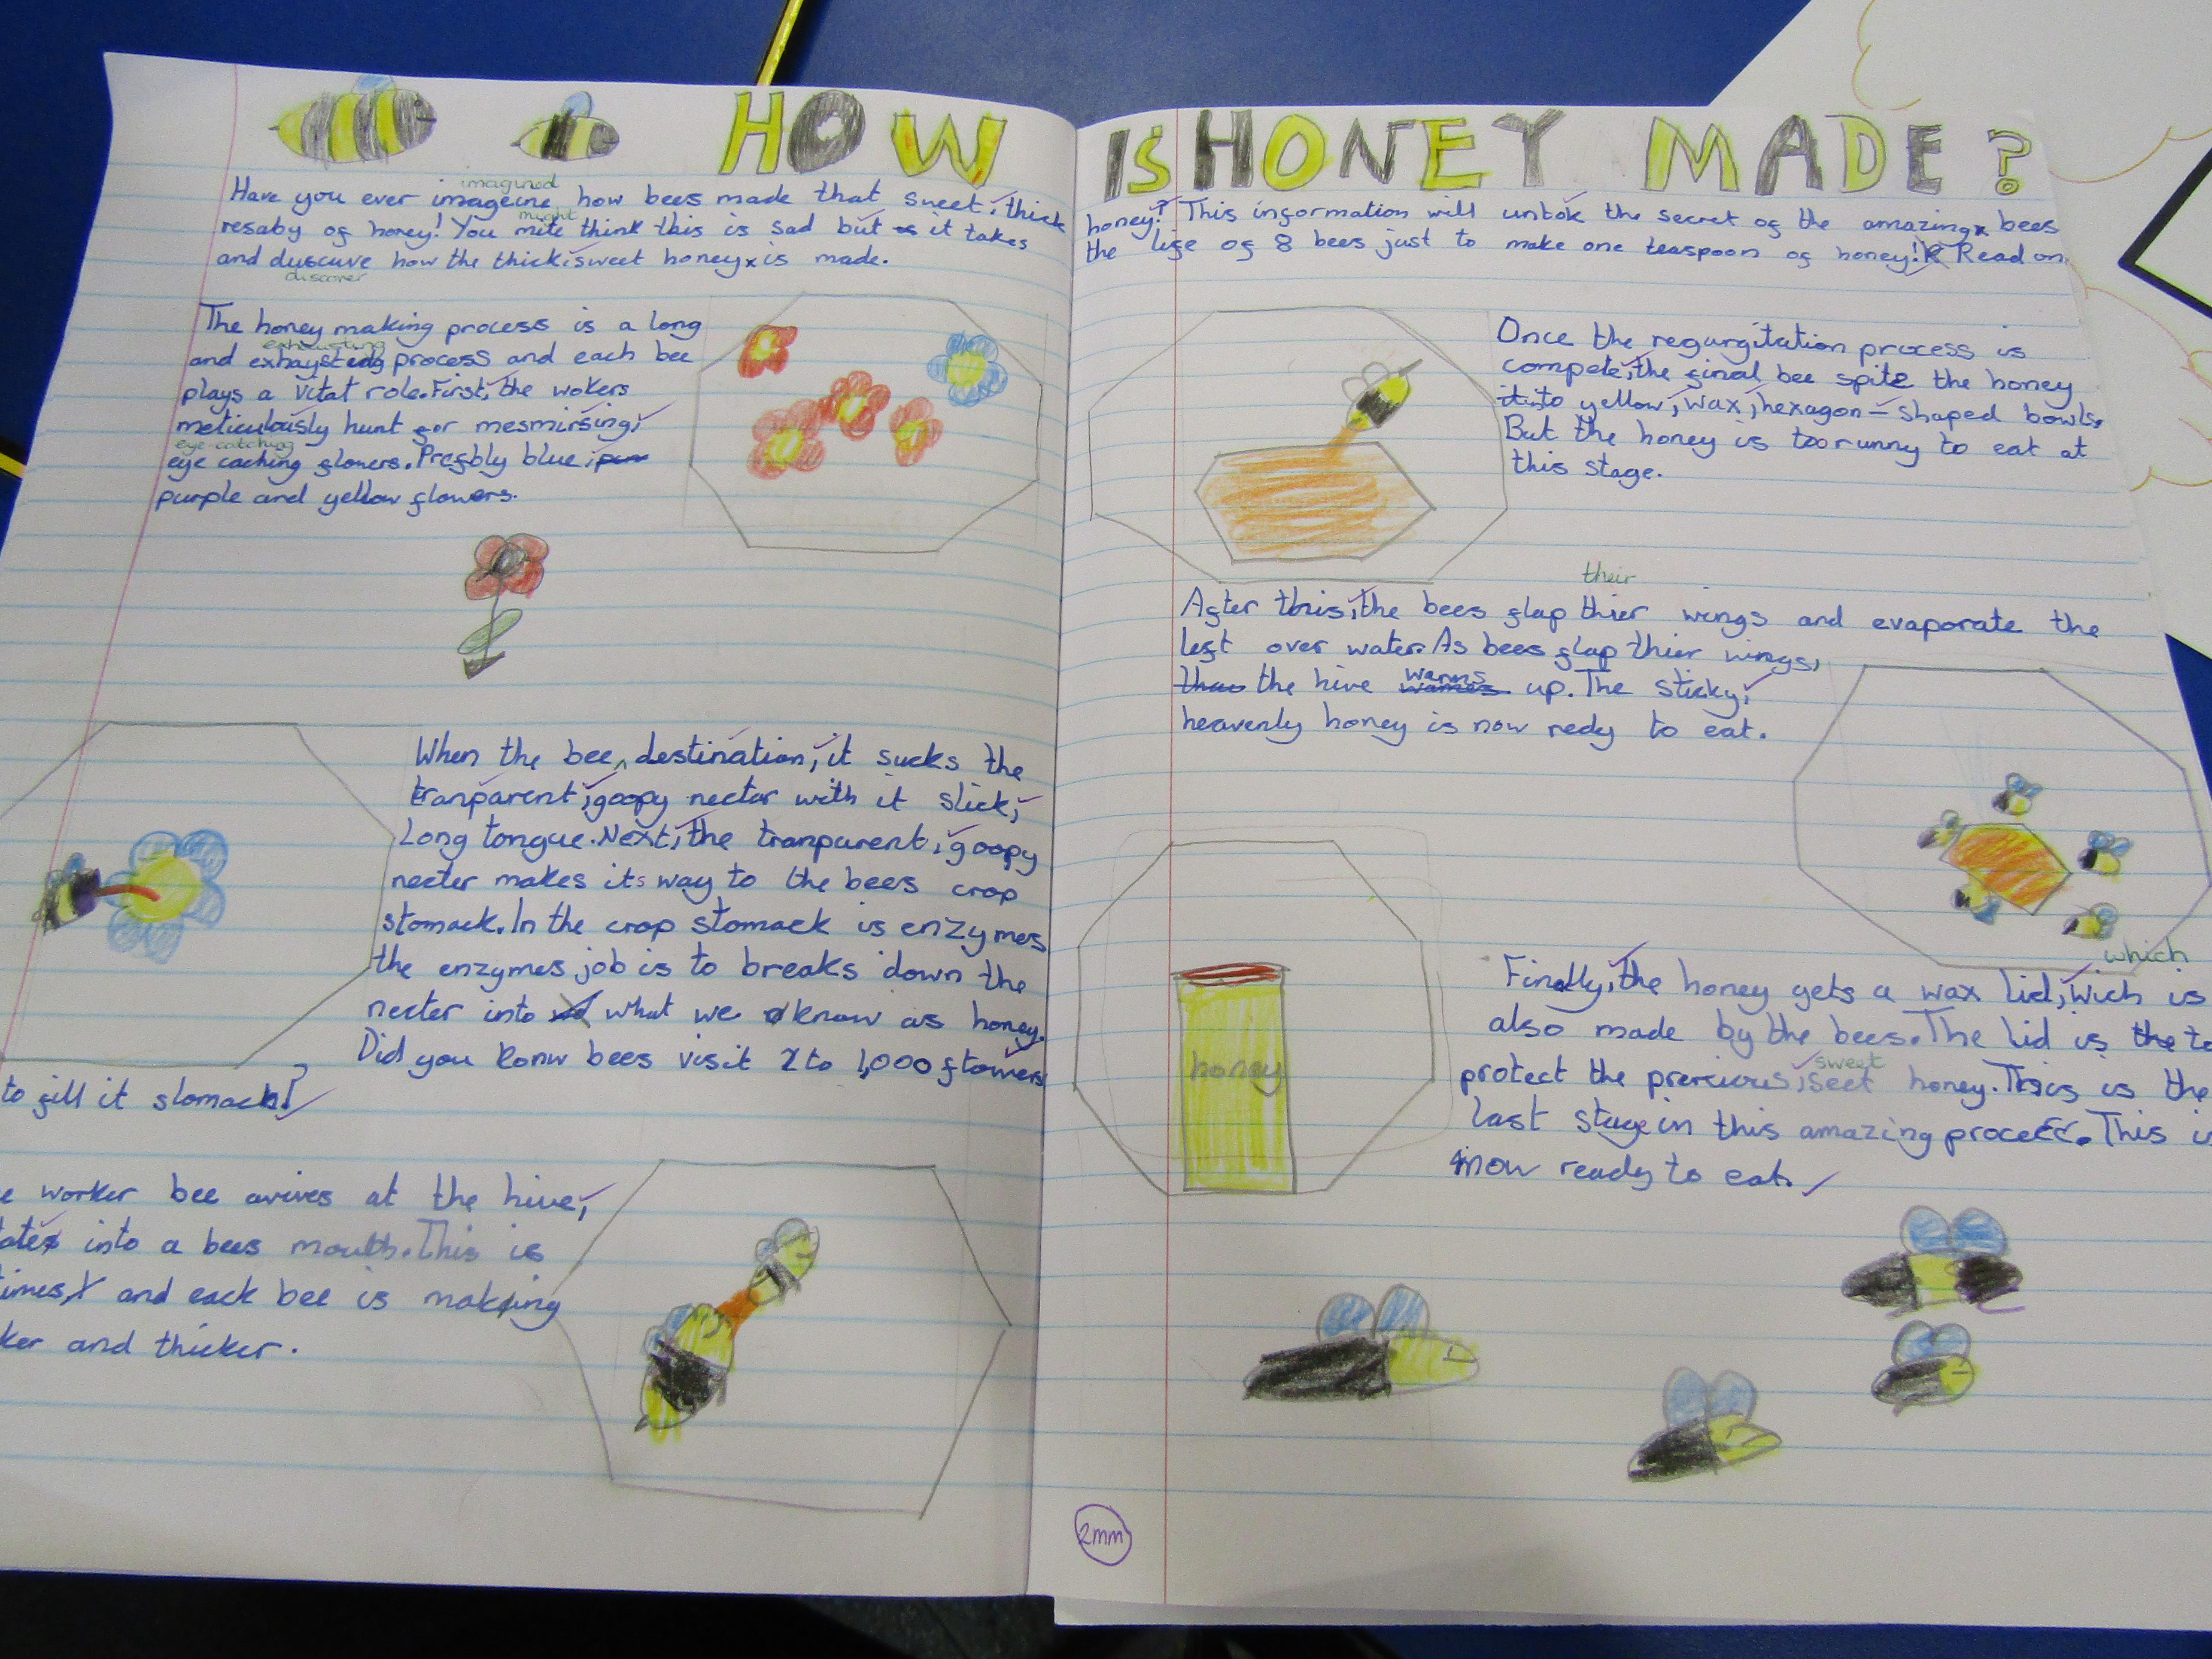 HOW IS HONEY MADE?
imagined
Have you ever imageine how bees made that sweet, thick honey? This information will untok the secret of the amazing bees
might
resaby of honey! You mite think this is sad but it takes the life of 8 bees just to make one teaspoon of honey! Read on
and duscuve how the thick, sweet honey is made.
discover
The honey making process is a long
exhausting
and exhaysteng process and each bee
plays a vital role. First, the wokers
meticulously hunt for mesmirsing,
eye-catching
eye caching flowers. Prefbly blue,
purple and yellow flowers.
When the bee destination, it sucks the
tranparent, goopy nectar with it slick,
Long tongue. Next, the tranparent, goopy
necter makes its way to the bees crop
stomack. In the crop stomack is enzymes
the enzymes job is to breaks down the
necter into what we know as honey.
Did you konw bees visit to 1,000 flowers
to fill it stomack?
worker bee arives at the hive,
into a bees mouth. This is
times, and eack bee is making
and thicker.
Once the regurgitation process is
compete, the final bee spits the honey
into yellow, wax, hexagon-shaped bowls.
But the honey is too runny to eat at
this stage.
their
After this, the bees flap thier wings and evaporate the
left over water. As bees flap thier wings,
the hive warms up. The sticky,
heavenly honey is now redy to eat.
honey
which
Finally, the honey gets a wax lid, wich is
also made by the bees. The lid is the to
sweet
protect the prercious, seet honey. This is the
last stage in this amazing process. This is
now ready to eat.
2mm